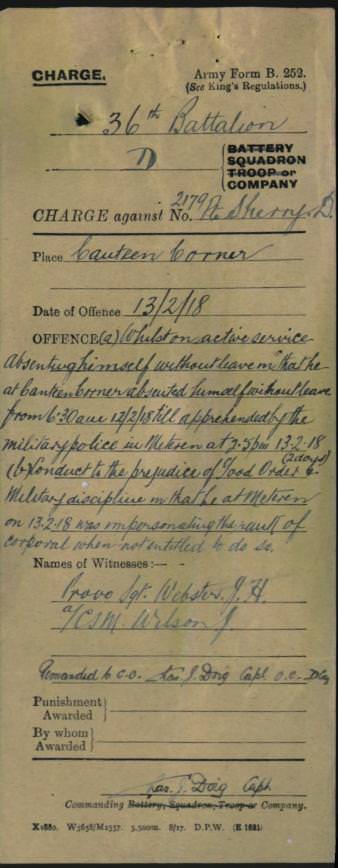 CHARGE.
Army Form B. 252.
(See King's Regulations.)
36th Battalion
D
BATTERY
SQUADRON
TROOP or
COMPANY
CHARGE against No. 2179 Pte Sherry. D.
Place Canteen Corner
Date of Offence 13/2/18
OFFENCE (a) Whilst on active service
absenting himself without leave in that he
at Canteen Corner absented himself without leave
from 6:30 am 12/2/18 till apprehended by the
military police in Meteren at 7-5 pm 13-2-18
(2 days)
(b) Conduct to the prejudice of Good Order &
Military discipline in that he at Meteren
on 13-2-18 was impersonating the rank of
corporal when not entitled to do so.
Names of Witnesses:—
Provo Sgt. Webster. J. H.
a/CSM. Wilson J.
Remanded to C.O. Jas. J. Doig Capt O.C. D Coy
Punishment
Awarded
By whom
Awarded
Jas. J. Doig Capt
Commanding Battery, Squadron, Troop or Company.
X1880. W5658/M2357. 3,500m. 8/17. D.P.W. (E 1621)